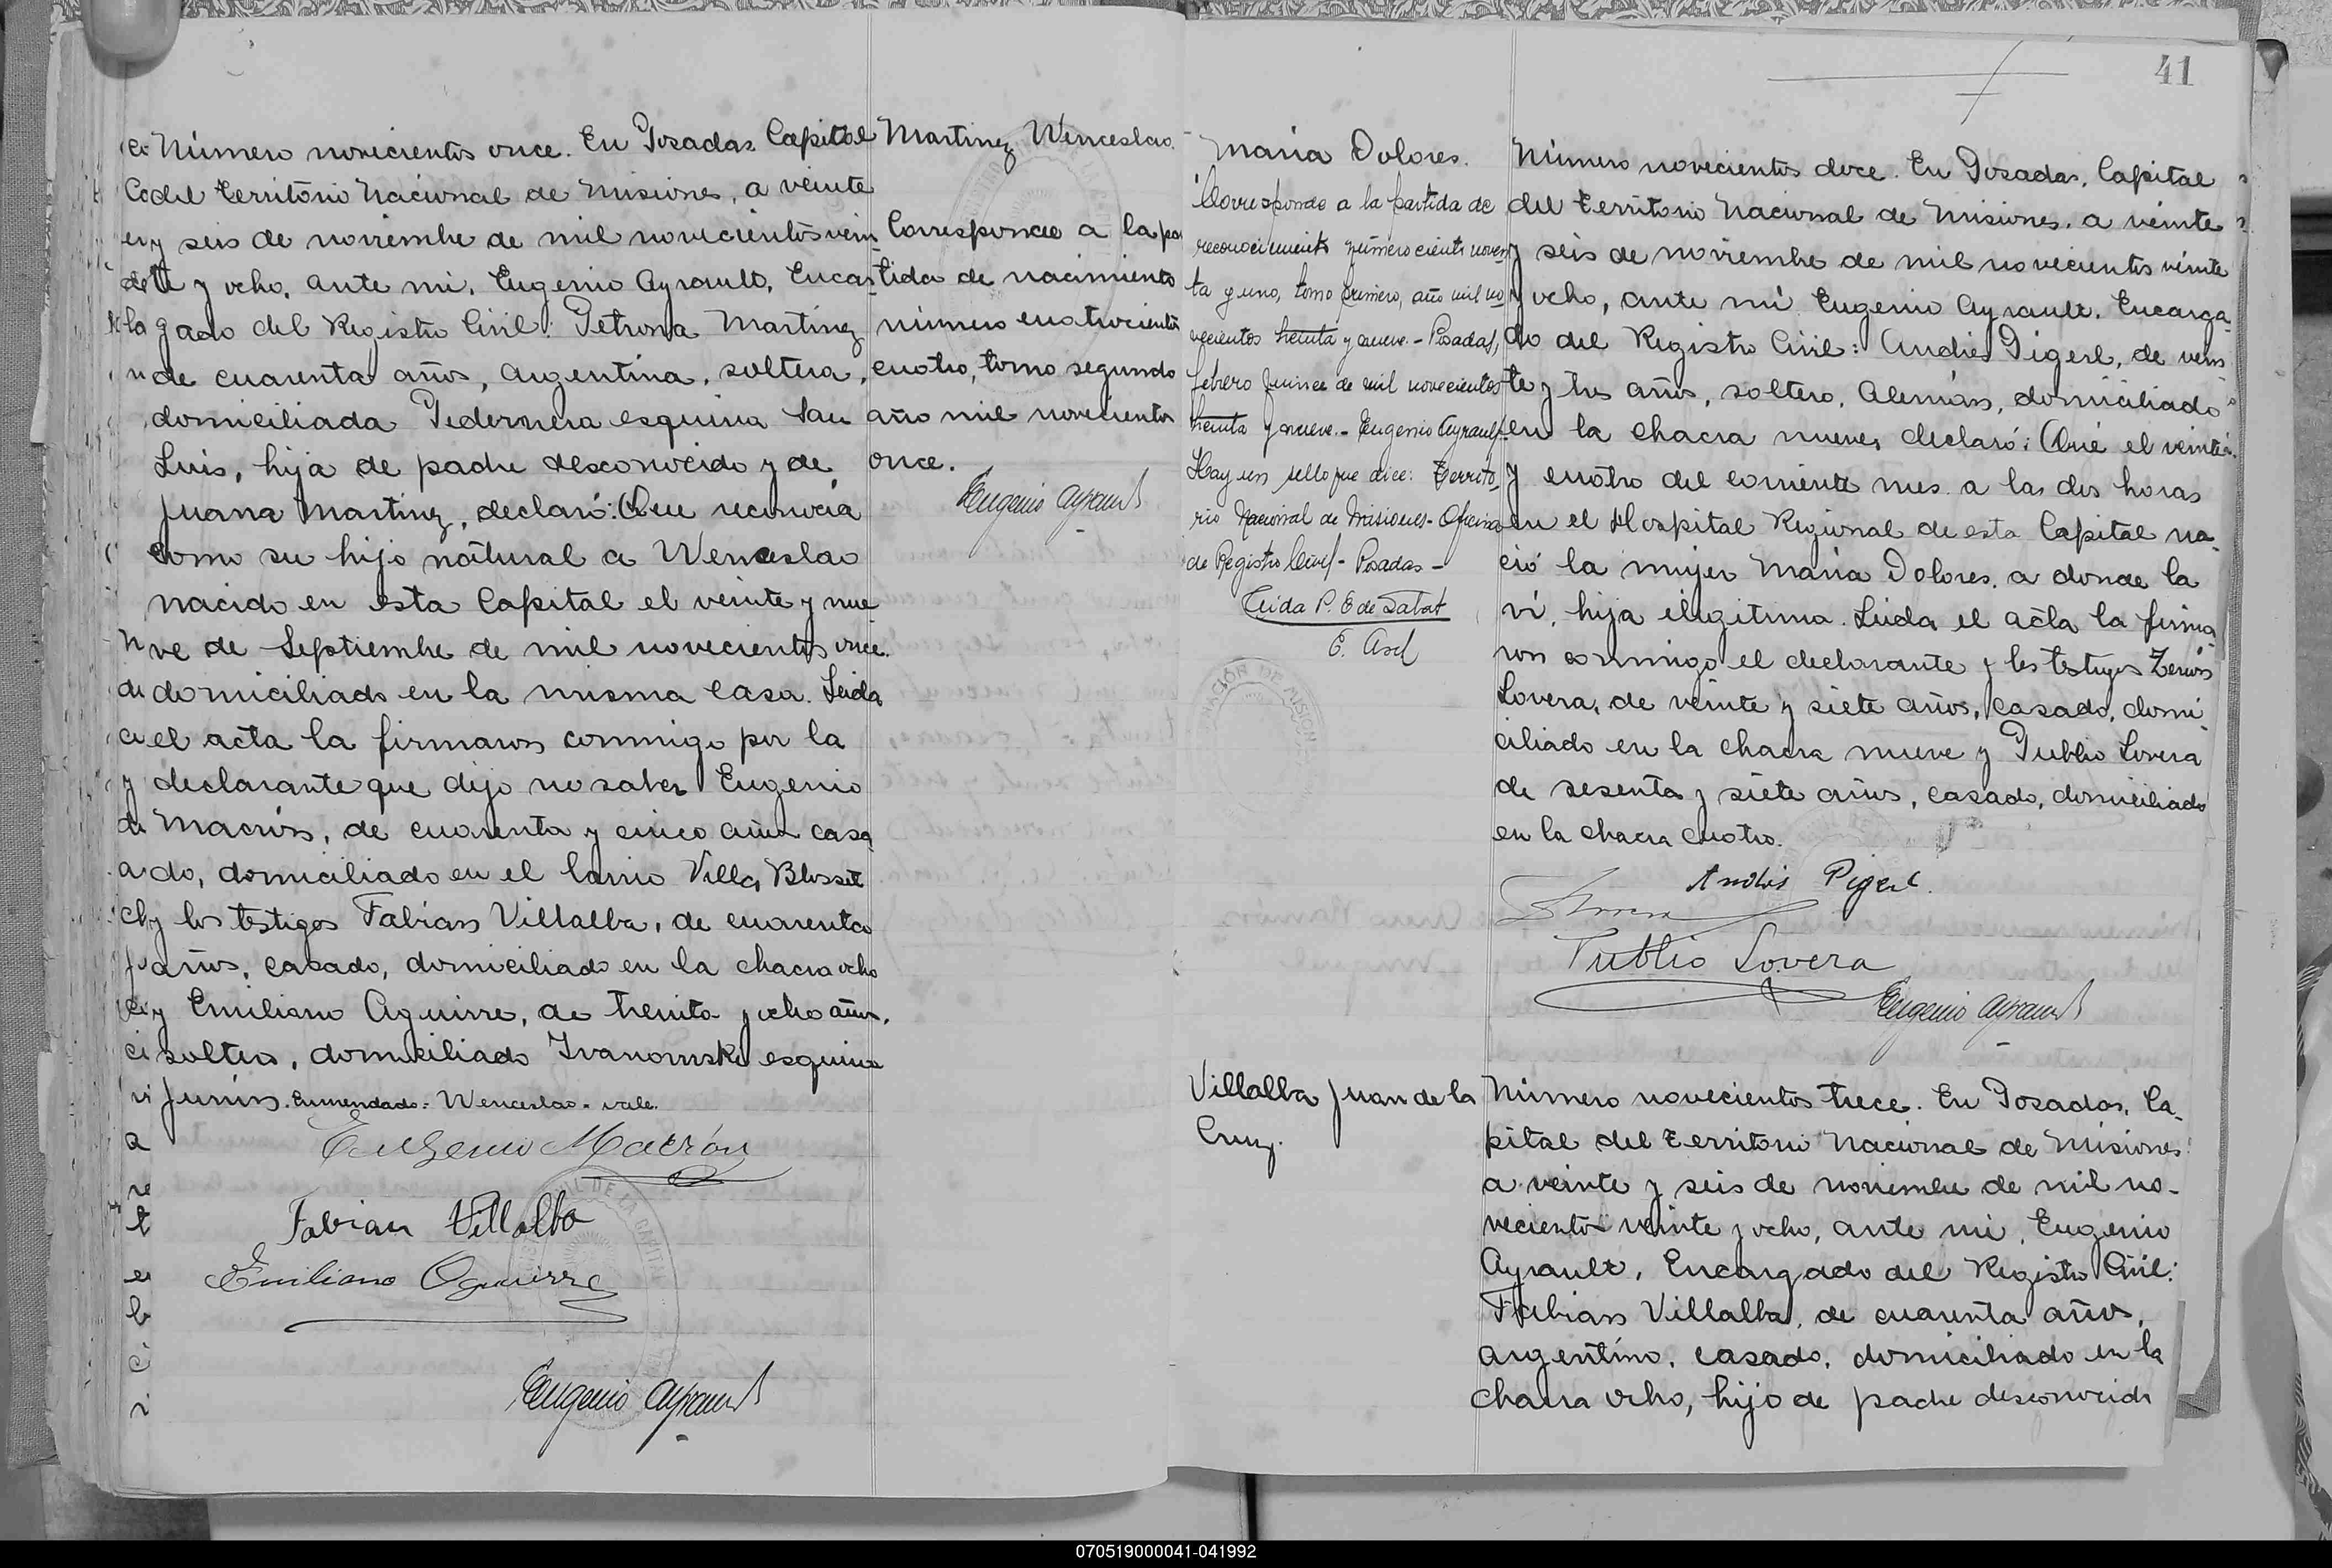 Número novecientos once. En Posadas Capital
del territorio Nacional de Misiones, a veinte
y seis de noviembre de mil novecientos vein
te y ocho, ante mi, Eugenio Ayrault, Encar
gado del Registro Civil: Petrona Martinez
de cuarenta años, Argentina, soltera,
domiciliada Pedernera esquina San
Luis, hija de padre desconocido y de
Juana Martinez, declaró: Que reconocía
como su hijo natural a Wenceslao
nacido en esta Capital el veinte y nue
ve de Septiembre de mil novecientos once
domiciliado en la misma casa. Leida
el acta la firmaron conmigo por la
declarante que dijo no saber Eugenio
Macrón, de cuarenta y cinco años casa
do, domiciliado en el barrio Villa Blosset
y los testigos Fabian Villalba, de cuarenta
años, casado, domiciliado en la chacra ocho
y Emiliano Aguirre, de treinta y ocho años,
soltero, domiciliado Ivanowski esquina
Junin. Enmendado: Wenceslao - vale.
Eugenio Macrón
Fabian Villalba
Emiliano Aguirre
Eugenio Ayrault
Martinez Wenceslao.
Corresponde a la par
tida de nacimiento
número cuatrocientos
cuatro, tomo segundo
año mil novecientos
once.
Eugenio Ayrault
41
Maria Dolores.
Corresponde a la partida de
reconocimiento número ciento noven
ta y uno, tomo primero, año mil no
vecientos treinta y nueve.- Posadas,
febrero quince de mil novecientos
treinta y nueve.- Eugenio Ayrault-
Hay un sello que dice: Territo
rio Nacional de Misiones- Oficina
de Registro Civil- Posadas-
E. Asel
Número novecientos doce. En Posadas, Capital
del territorio Nacional de Misiones, a veinte
y seis de noviembre de mil novecientos veinte
y ocho, ante mi Eugenio Ayrault, Encarga
do del Registro Civil: Andrés Pigerl, de vein
te y tres años, soltero, Alemán, domiciliado
en la chacra nueve, declaró: Que el veinte
y cuatro del corriente mes a las dos horas
en el Hospital Regional de esta Capital na
ció la mujer Maria Dolores, a donde la
ví, hija ilegitima. Leida el acta la firma
ron conmigo el declarante y los testigos Zenón
Lovera, de veinte y siete años, casado, domi
ciliado en la chacra nueve y Publio Lovera
de sesenta y siete años, casado, domiciliado
en la chacra cuatro.
Andrés Pigerl.
Publio Lovera
Eugenio Ayrault
Villalba Juan de la
Cruz.
Número novecientos trece. En Posadas, Ca
pital del territorio Nacional de Misiones
a veinte y seis de noviembre de mil no-
vecientos veinte y ocho, ante mi, Eugenio
Ayrault, Encargado del Registro Civil:
Fabian Villalba, de cuarenta años,
argentino, casado, domiciliado en la
chacra ocho, hijo de padre desconocido
070519000041-041992